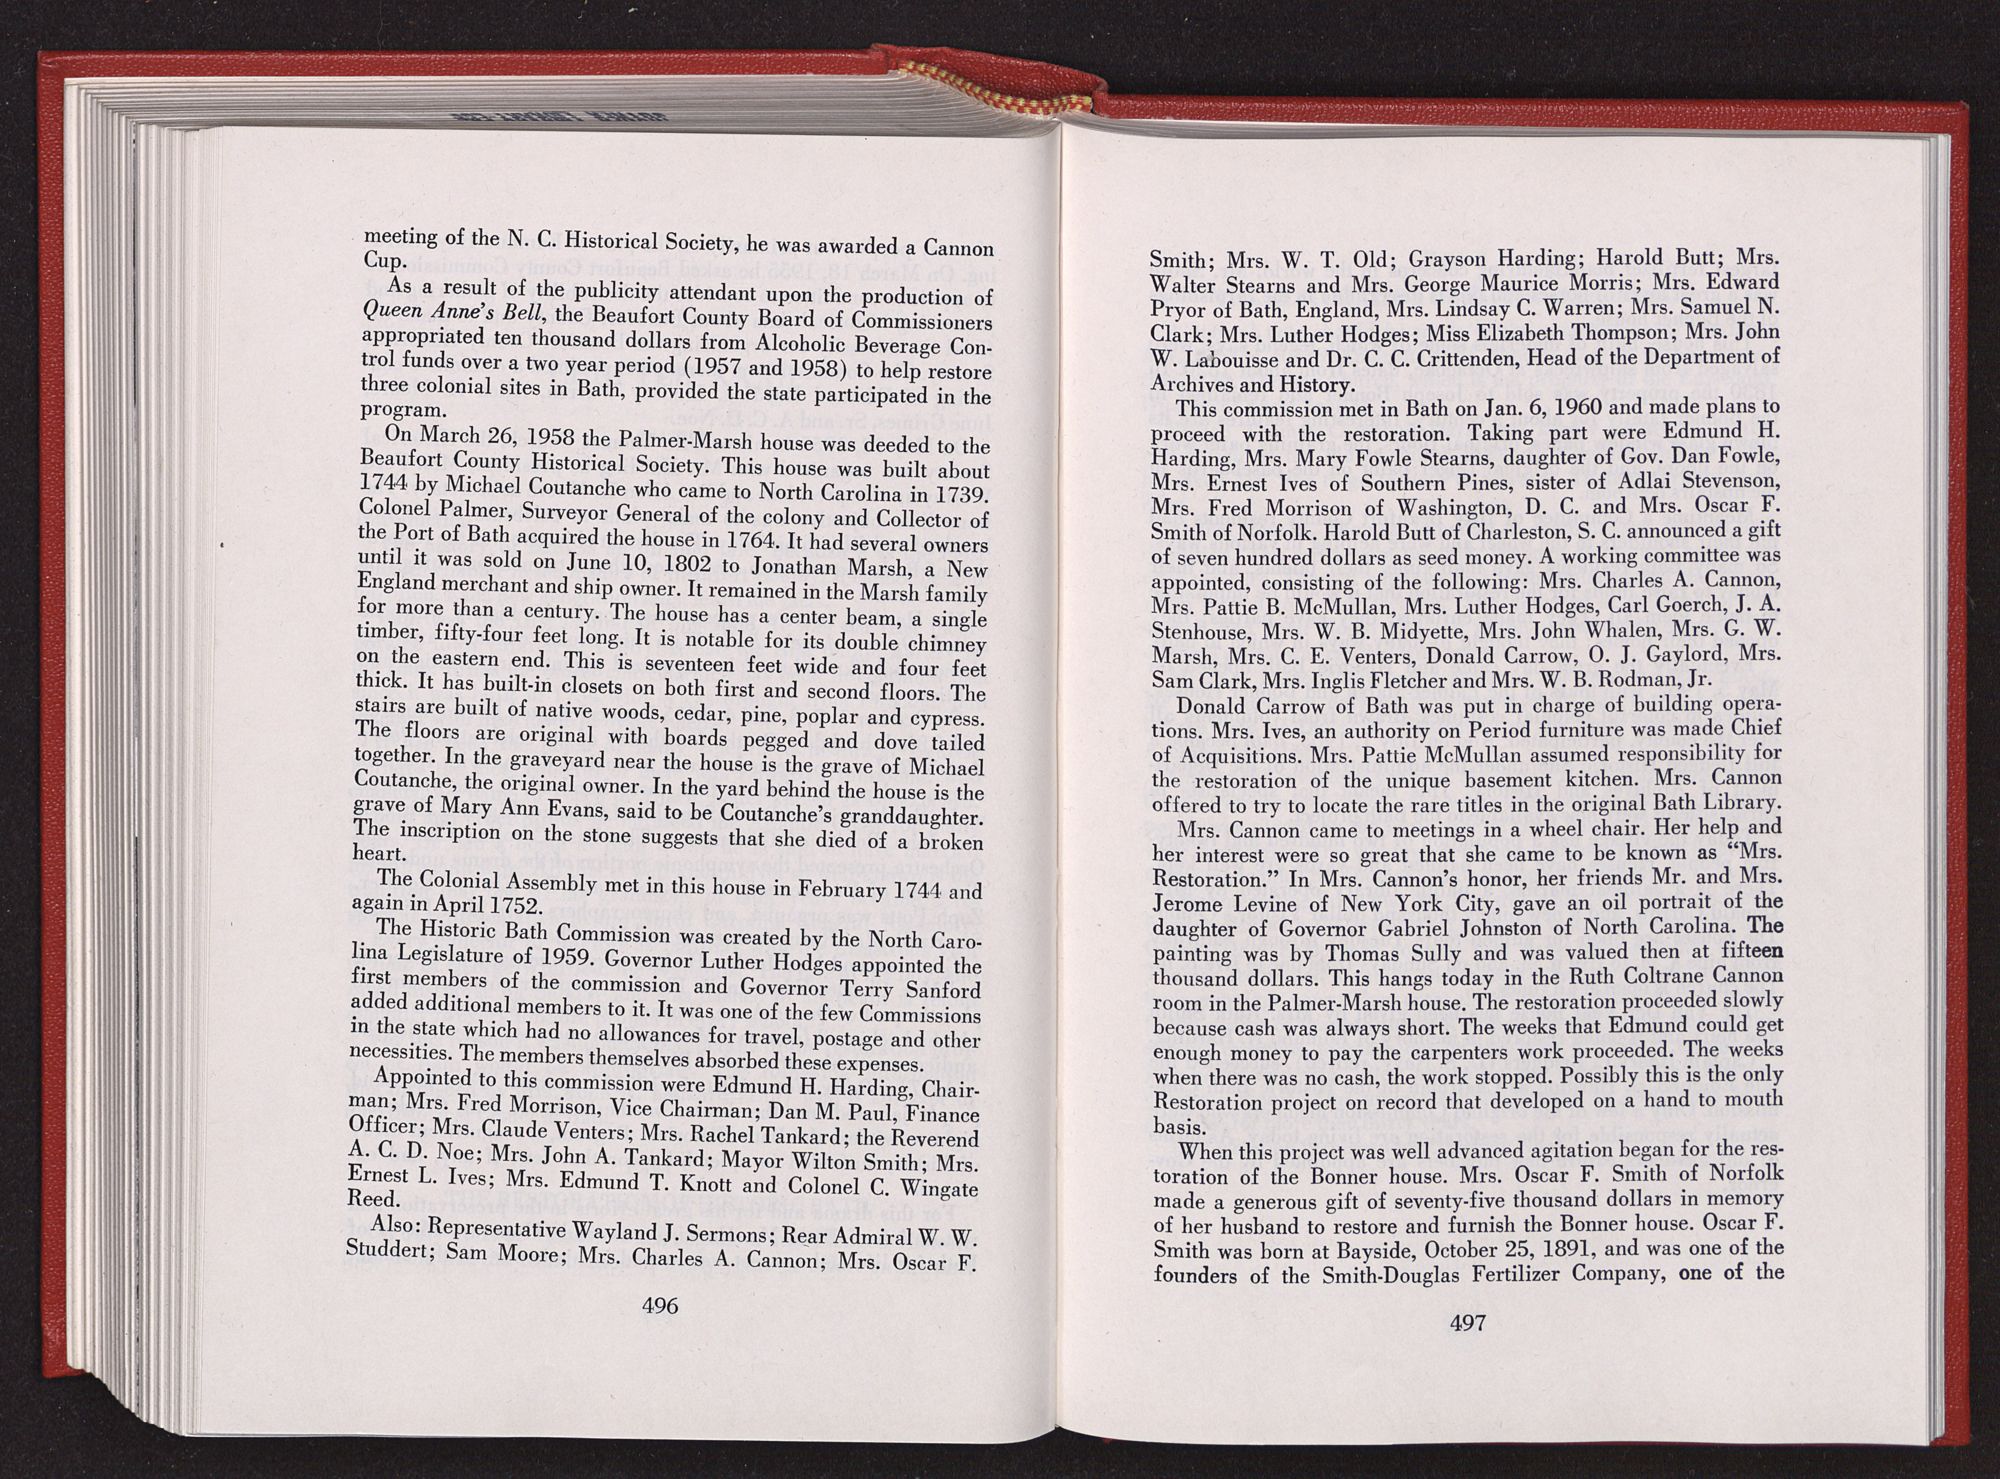 meeting of the N. C. Historical Society, he was awarded a Cannon
Cup.
As a result of the publicity attendant upon the production of
Queen Anne's Bell, the Beaufort County Board of Commissioners
appropriated ten thousand dollars from Alcoholic Beverage Con-
trol funds over a two year period (1957 and 1958) to help restore
three colonial sites in Bath, provided the state participated in the
program.
On March 26, 1958 the Palmer-Marsh house was deeded to the
Beaufort County Historical Society. This house was built about
1744 by Michael Coutanche who came to North Carolina in 1739.
Colonel Palmer, Surveyor General of the colony and Collector of
the Port of Bath acquired the house in 1764. It had several owners
until it was sold on June 10, 1802 to Jonathan Marsh, a New
England merchant and ship owner. It remained in the Marsh family
for more than a century. The house has a center beam, a single
timber, fifty-four feet long. It is notable for its double chimney
on the eastern end. This is seventeen feet wide and four feet
thick. It has built-in closets on both first and second floors. The
stairs are built of native woods, cedar, pine, poplar and cypress.
The floors are original with boards pegged and dove tailed
together. In the graveyard near the house is the grave of Michael
Coutanche, the original owner. In the yard behind the house is the
grave of Mary Ann Evans, said to be Coutanche's granddaughter.
The inscription on the stone suggests that she died of a broken
heart.
The Colonial Assembly met in this house in February 1744 and
again in April 1752.
The Historic Bath Commission was created by the North Caro-
lina Legislature of 1959. Governor Luther Hodges appointed the
first members of the commission and Governor Terry Sanford
added additional members to it. It was one of the few Commissions
in the state which had no allowances for travel, postage and other
necessities. The members themselves absorbed these expenses.
Appointed to this commission were Edmund H. Harding, Chair-
man; Mrs. Fred Morrison, Vice Chairman; Dan M. Paul, Finance
Officer; Mrs. Claude Venters; Mrs. Rachel Tankard; the Reverend
A. C. D. Noe; Mrs. John A. Tankard; Mayor Wilton Smith; Mrs.
Ernest L. Ives; Mrs. Edmund T. Knott and Colonel C. Wingate
Reed.
Also: Representative Wayland J. Sermons; Rear Admiral W. W.
Studdert; Sam Moore; Mrs. Charles A. Cannon; Mrs. Oscar F.
496
Smith; Mrs. W. T. Old; Grayson Harding; Harold Butt; Mrs.
Walter Stearns and Mrs. George Maurice Morris; Mrs. Edward
Pryor of Bath, England, Mrs. Lindsay C. Warren; Mrs. Samuel N.
Clark; Mrs. Luther Hodges; Miss Elizabeth Thompson; Mrs. John
W. Labouisse and Dr. C. C. Crittenden, Head of the Department of
Archives and History.
This commission met in Bath on Jan. 6, 1960 and made plans to
proceed with the restoration. Taking part were Edmund H.
Harding, Mrs. Mary Fowle Stearns, daughter of Gov. Dan Fowle,
Mrs. Ernest Ives of Southern Pines, sister of Adlai Stevenson,
Mrs. Fred Morrison of Washington, D. C. and Mrs. Oscar F.
Smith of Norfolk. Harold Butt of Charleston, S. C. announced a gift
of seven hundred dollars as seed money. A working committee was
appointed, consisting of the following: Mrs. Charles A. Cannon,
Mrs. Pattie B. McMullan, Mrs. Luther Hodges, Carl Goerch, J. A.
Stenhouse, Mrs. W. B. Midyette, Mrs. John Whalen, Mrs. G. W.
Marsh, Mrs. C. E. Venters, Donald Carrow, O. J. Gaylord, Mrs.
Sam Clark, Mrs. Inglis Fletcher and Mrs. W. B. Rodman, Jr.
Donald Carrow of Bath was put in charge of building opera-
tions. Mrs. Ives, an authority on Period furniture was made Chief
of Acquisitions. Mrs. Pattie McMullan assumed responsibility for
the restoration of the unique basement kitchen. Mrs. Cannon
offered to try to locate the rare titles in the original Bath Library.
Mrs. Cannon came to meetings in a wheel chair. Her help and
her interest were so great that she came to be known as “Mrs.
Restoration.” In Mrs. Cannon's honor, her friends Mr. and Mrs.
Jerome Levine of New York City, gave an oil portrait of the
daughter of Governor Gabriel Johnston of North Carolina. The
painting was by Thomas Sully and was valued then at fifteen
thousand dollars. This hangs today in the Ruth Coltrane Cannon
room in the Palmer-Marsh house. The restoration proceeded slowly
because cash was always short. The weeks that Edmund could get
enough money to pay the carpenters work proceeded. The weeks
when there was no cash, the work stopped. Possibly this is the only
Restoration project on record that developed on a hand to mouth
basis.
When this project was well advanced agitation began for the res-
toration of the Bonner house. Mrs. Oscar F. Smith of Norfolk
made a generous gift of seventy-five thousand dollars in memory
of her husband to restore and furnish the Bonner house. Oscar F.
Smith was born at Bayside, October 25, 1891, and was one of the
founders of the Smith-Douglas Fertilizer Company, one of the
497